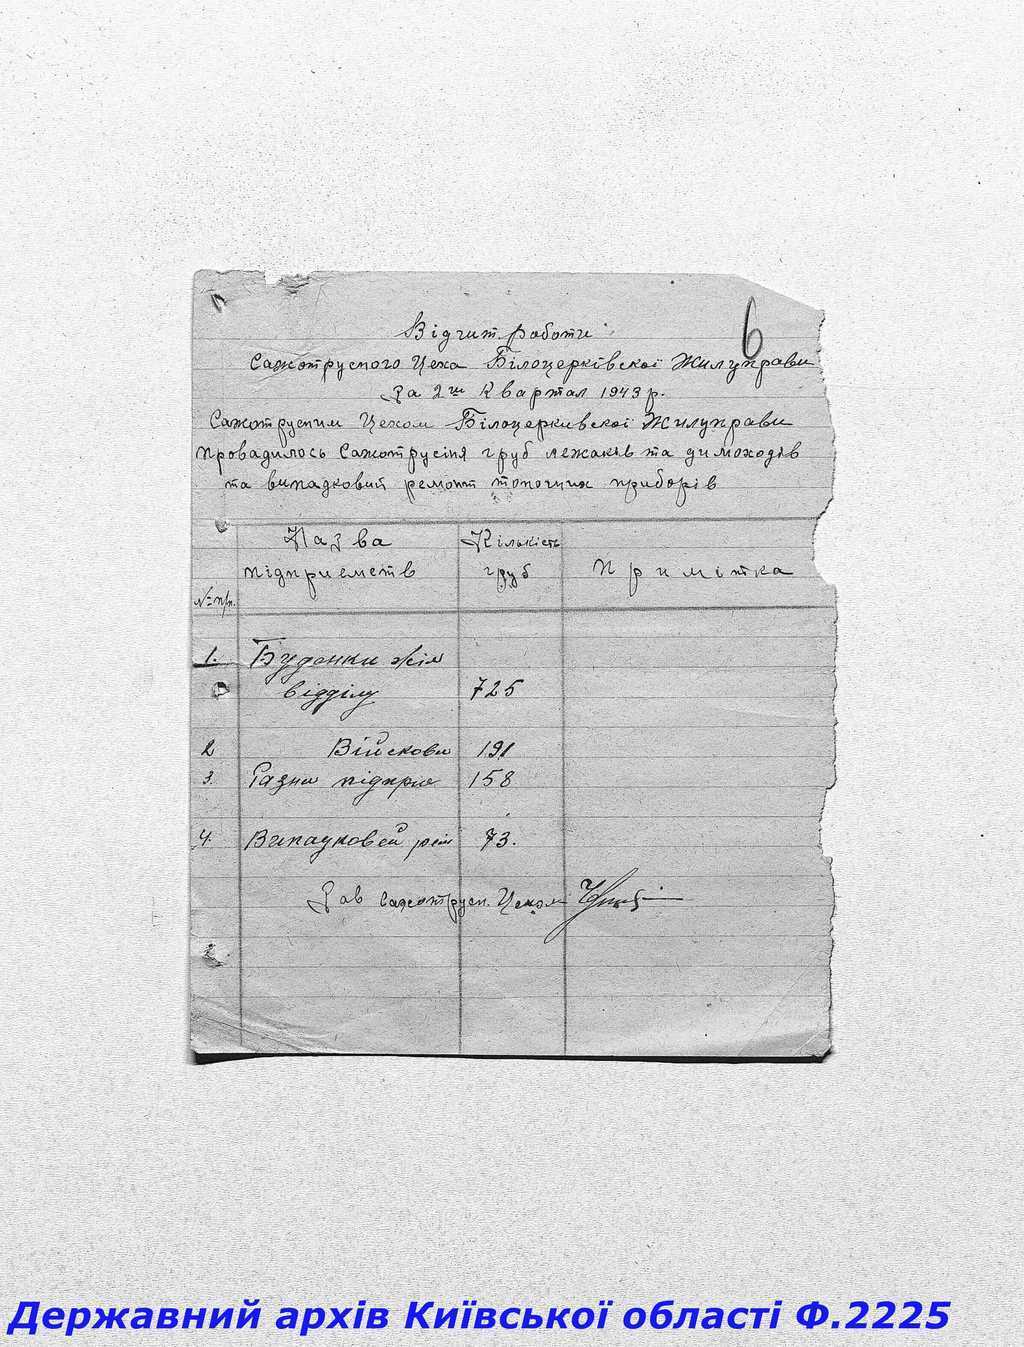 6
Відчит роботи
Сажотрусного Цеха Білоцерківскої Жилуправи
За 2ий Квартал 1943 р.
Сажотрусним Цехом Білоцеркивскої Жилуправи
провадилось Сажотрусіня груб лежаків та димоходів
та випадковий ремонт топочних приборів
№ п/п.
Назва підприємств
Кількість груб
Примітка
1. Буденки жил
відділу 725
2 Військови 191
3. Разни підпри 158
4. Випадковей рем 73.
Зав сажотрусн. Цехом
Державний архів Київської області Ф.2225